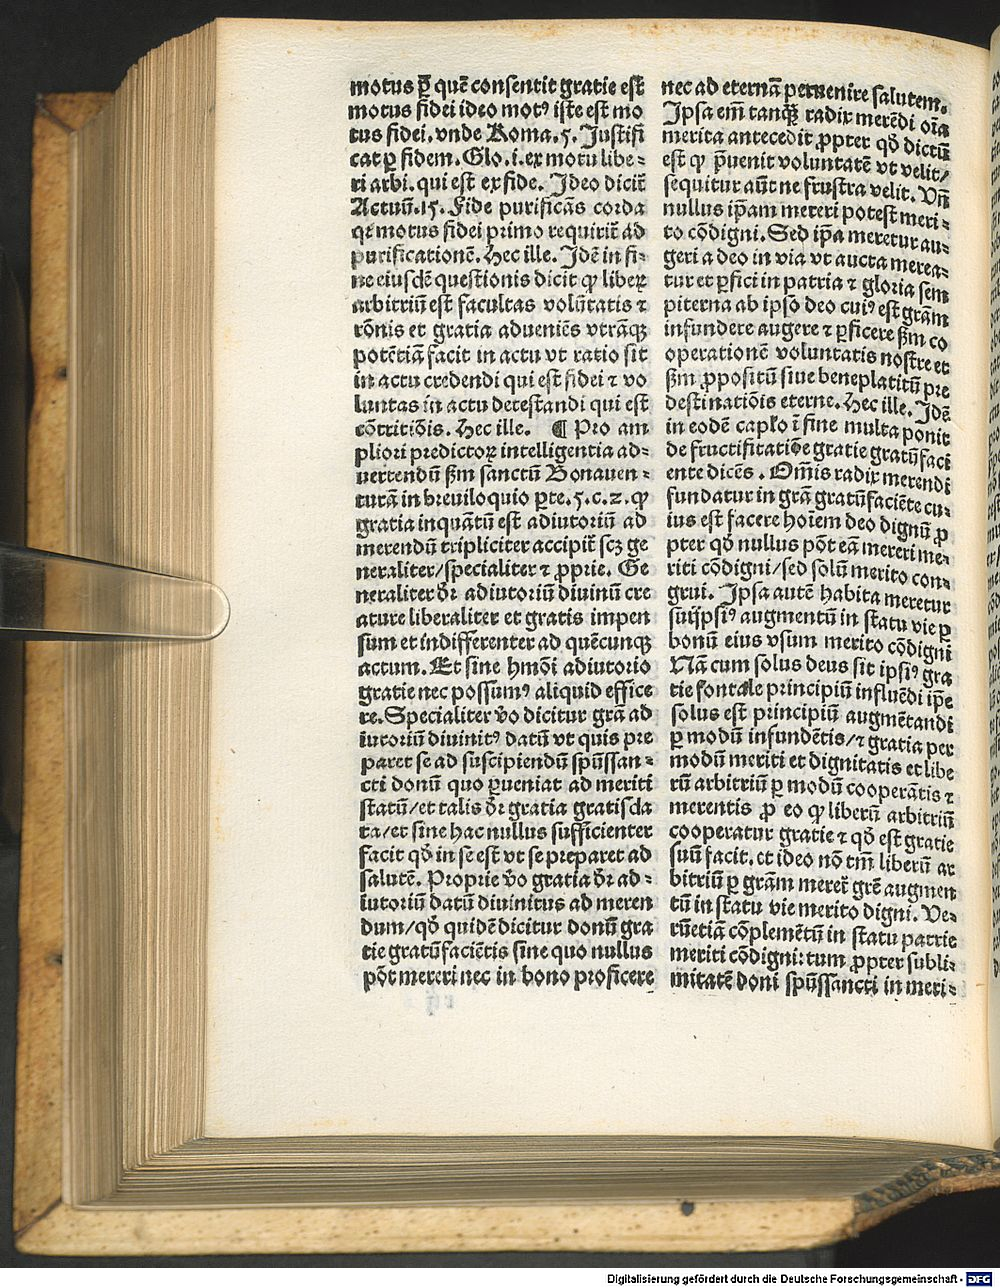 motus ꝑ quē consentit gratie est
motus fidei ideo motꝰ iste est mo
tus fidei. vnde Roma. 5. Justifi
cat ꝑ fidem. Glo. i. ex motu libe⸗
ri arbi. qui est ex fide. Ideo dicit̃
Actuū. 15. Fide purificās corda
qꝛ motus fidei primo requirit̃ ad
purificationē. Hec ille. Idē in fi⸗
ne eiusdē questionis dicit ꝙ liberꝝ
arbitriū est facultas volūtatis ⁊
rōnis et gratia adueniēs vtrāqꝫ
potētiā facit in actu vt ratio sit
in actu credendi qui est fidei ⁊ vo
luntas in actu detestandi qui est
cōtritiōis. Hec ille. ¶ Pro am
pliori predictoꝝ intelligentia ad⸗
uertendū ẜm sanctū Bonauen⸗
turā in breuiloquio ꝑte. 5. c. 2. ꝙ
gratia inquātū est adiutoriū ad
merendū tripliciter accipit̃ scꝫ ge
neraliter/specialiter ⁊ ꝓprie. Ge
neraliter dr̄ adiutoriū diuinū cre
ature liberaliter et gratis impen
sum et indifferenter ad quēcunqꝫ
actum. Et sine hmōi adiutorio
gratie nec possumꝰ aliquid effice
re. Specialiter ṽo dicitur grā ad
iutoriū diuinitꝰ datū vt quis pre
paret se ad suscipiendū spūssan⸗
cti donū quo ꝑueniat ad meriti
statū/et talis dr̄ gratia gratis da
ta/et sine hac nullus sufficienter
facit qđ in se est vt se preparet ad
salutē. Proprie ṽo gratia dr̄ ad⸗
iutoriū datū diuinitus ad meren
dum/qđ quidē dicitur donū gra
tie gratūfaciētis sine quo nullus
pōt mereri nec in bono proficere
nec ad eternā peruenire salutem.
Ipsa em̄ tanqꝫ radix merēdi oīa
merita antecedit ꝓpter qđ dictū
est ꝙ p̄uenit voluntatē vt velit/
sequitur aūt ne frustra velit. Vn̄
nullus ip̄am mereri potest meri⸗
to cōdigni. Sed ip̄a meretur au⸗
geri a deo in via vt aucta merea⸗
tur et ꝑfici in patria ⁊ gloria sem
piterna ab ipso deo cuiꝰ est grām
infundere augere ⁊ ꝑficere ẜm co
operationē voluntatis nostre et
ẜm ꝓpositū siue beneplacitū pre
destinatiōis eterne. Hec ille. Idē
in eodē capło ī fine multa ponit
de fructificatiōe gratie gratūfaci
ente dicēs. Om̄is radix merendi
fundatur in grā gratūfaciēte cu⸗
ius est facere hoīem deo dignū ꝓ
pter qđ nullus pōt eā mereri me⸗
riti cōdigni/sed solū merito con⸗
grui. Ipsa autē habita meretur
suijpsiꝰ augmentū in statu vie ꝑ
bonū eius vsum merito cōdigni
Nā cum solus deus sit ipsiꝰ gra
tie fontale principiū influēdi ip̄e
solus est principiū augmētandi
ꝑ modū infundētis/⁊ gratia per
modū meriti et dignitatis et libe
rū arbitriū ꝑ modū cooperātis ⁊
merentis ꝓ eo ꝙ liberū arbitriū
cooperatur gratie ⁊ qđ est gratie
suū facit. et ideo nō tm̄ liberū ar
bitriū ꝑ grām meret̃ grē augmen
tū in statu vie merito digni. Ve⸗
rūetiā cōplemētū in statu patrie
meriti cōdigni: tum ꝓpter subli⸗
mitatē doni spūssancti in meri⸗
Digitalisierung gefördert durch die Deutsche Forschungsgemeinschaft - DFG